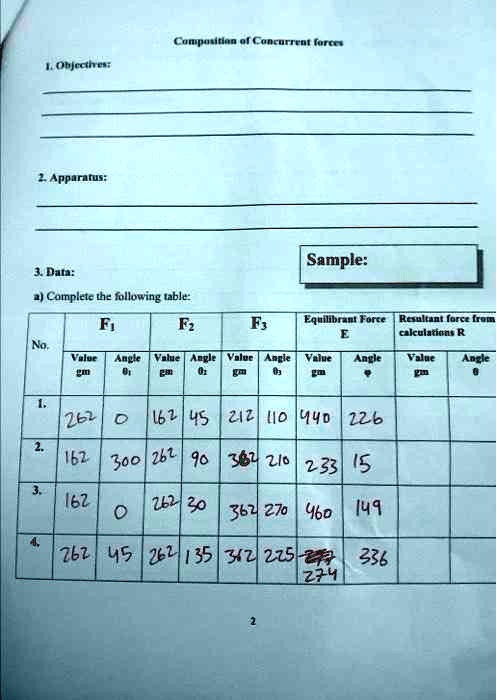 Composition of Concurrent forces
1. Objectives:
2. Apparatus:
Sample:
3. Data:
a) Complete the following table:
No. F1 F2 F3 Equilibrant Force E Resultant force from calculations R
Value gm Angle θ1 Value gm Angle θ2 Value gm Angle θ3 Value gm Angle φ Value gm Angle θ
1. 262 0 162 45 212 110 440 226
2. 162 300 262 90 362 210 233 15
3. 162 0 262 30 362 270 460 149
4. 262 45 262 135 362 225 274 336
2